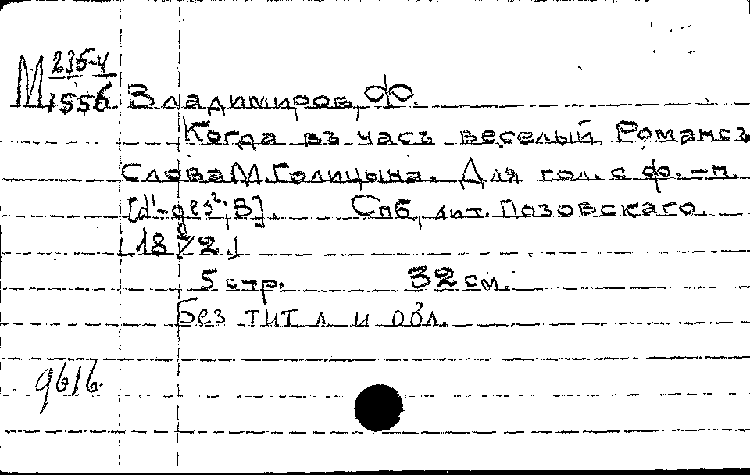 М 235-4
1556
Владимиров, Ф.
Когда въ часъ веселый Романсъ
Слова М. Голицына. Для гол. с ф.-п.
[d'-ges²; B]. Спб, лит. Лозовскаго.
[1872]
5 стр. 32 см.
Без тит л и обл.
9616.